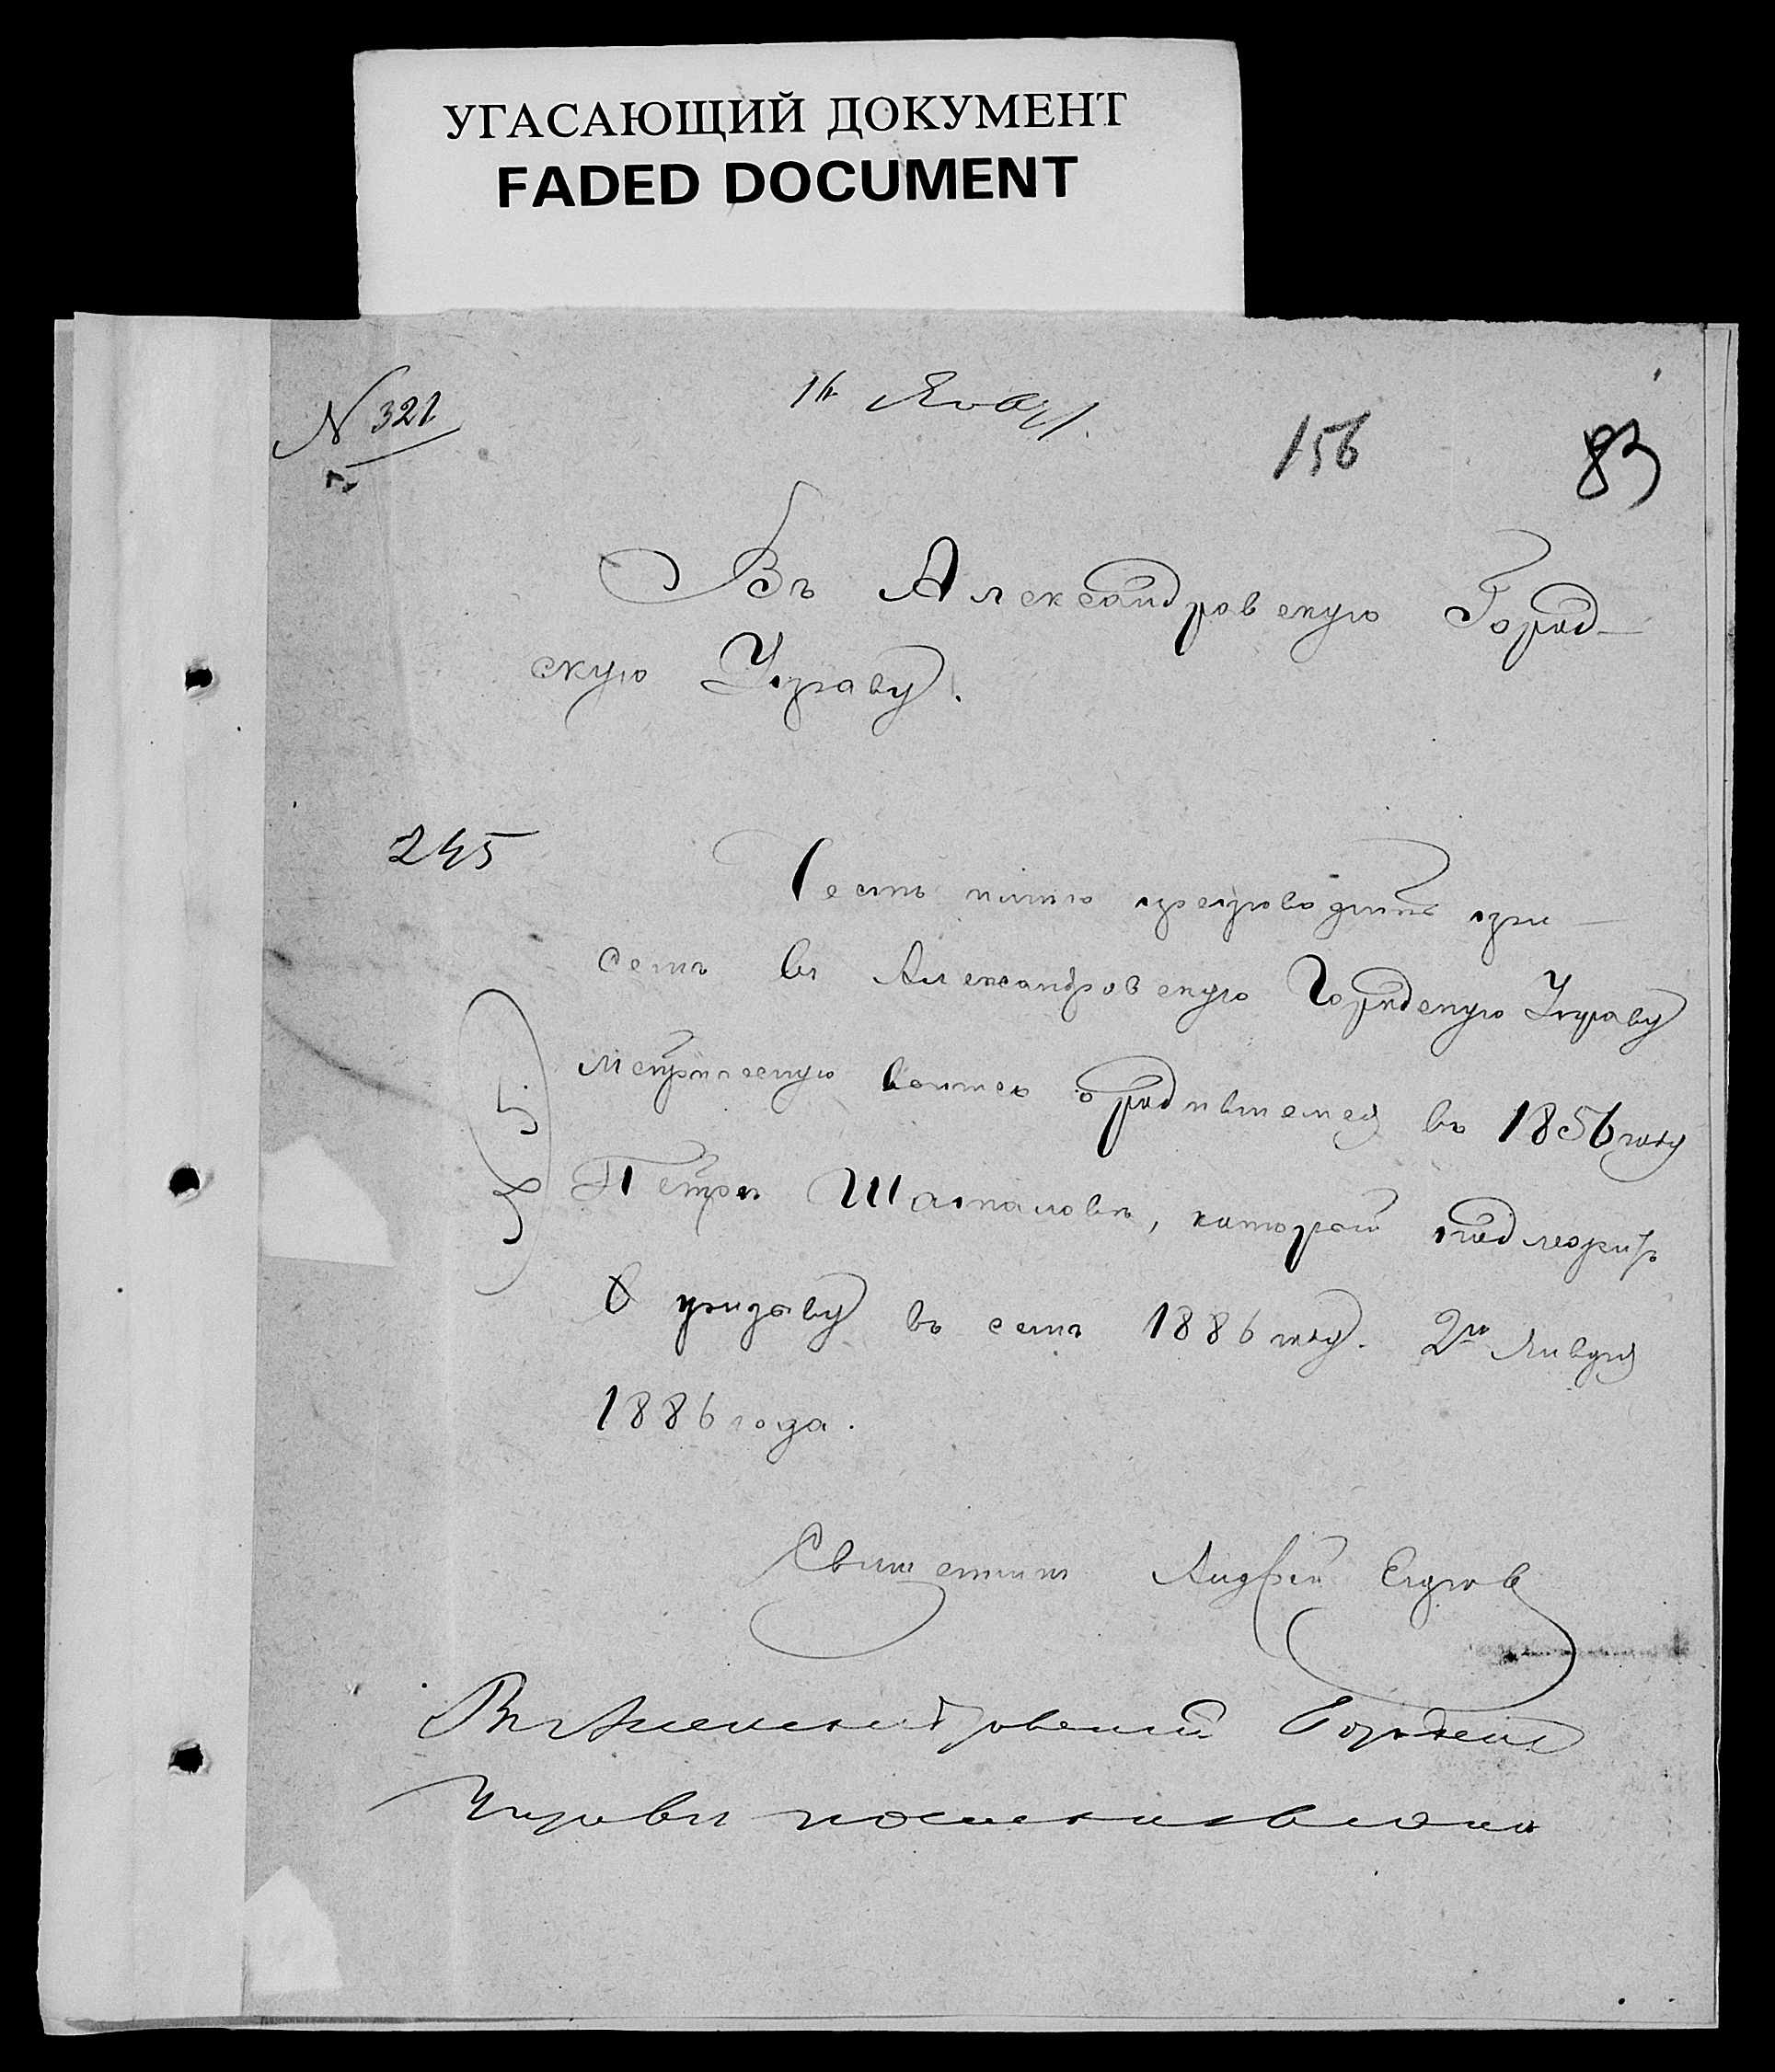 УГАСАЮЩИЙ ДОКУМЕНТ
FADED DOCUMENT
N 321
16 Янв
156
83
Въ Александровскую Город-
скую Управу.
245
Честь имѣю препроводить при
семъ въ Александровскую Городскую Управу
метрическую о родившемся въ 1856 году
Петрѣ Шаталовѣ, который подлежитъ
призыву въ семъ 1886 году. 2го Января
1886 года.
Священник Андрей
Въ Александровской Городской
Управы